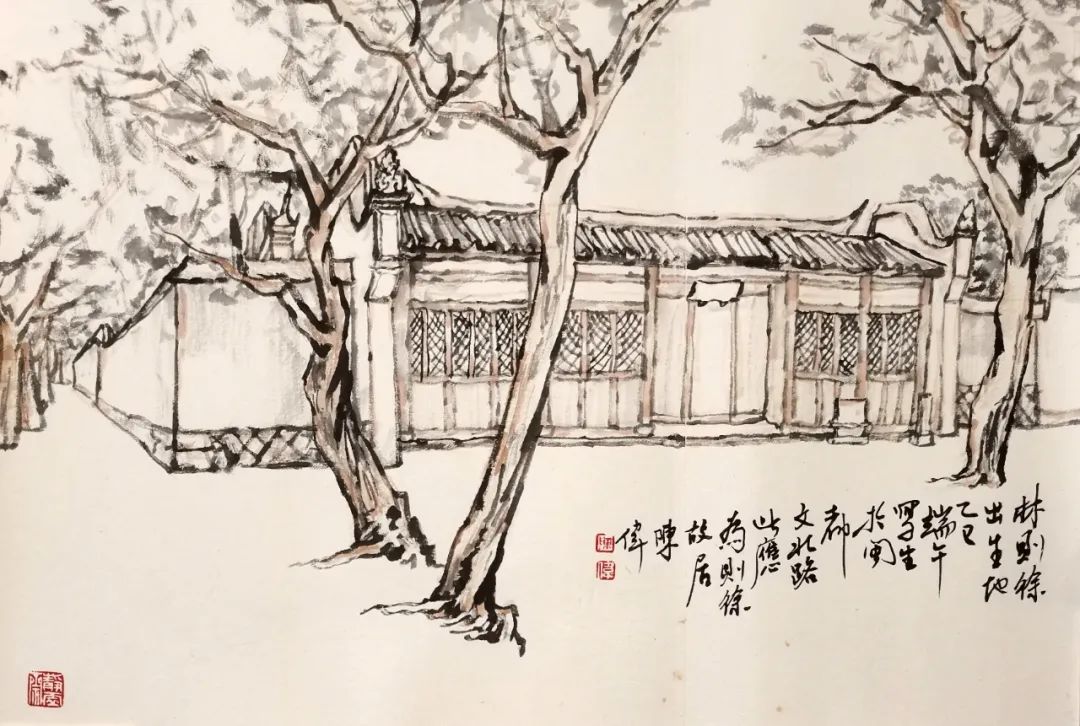 林则徐
出生地
乙巳
端午
写生
於闽
都
文北路
此應
為则徐
故居
陳
偉